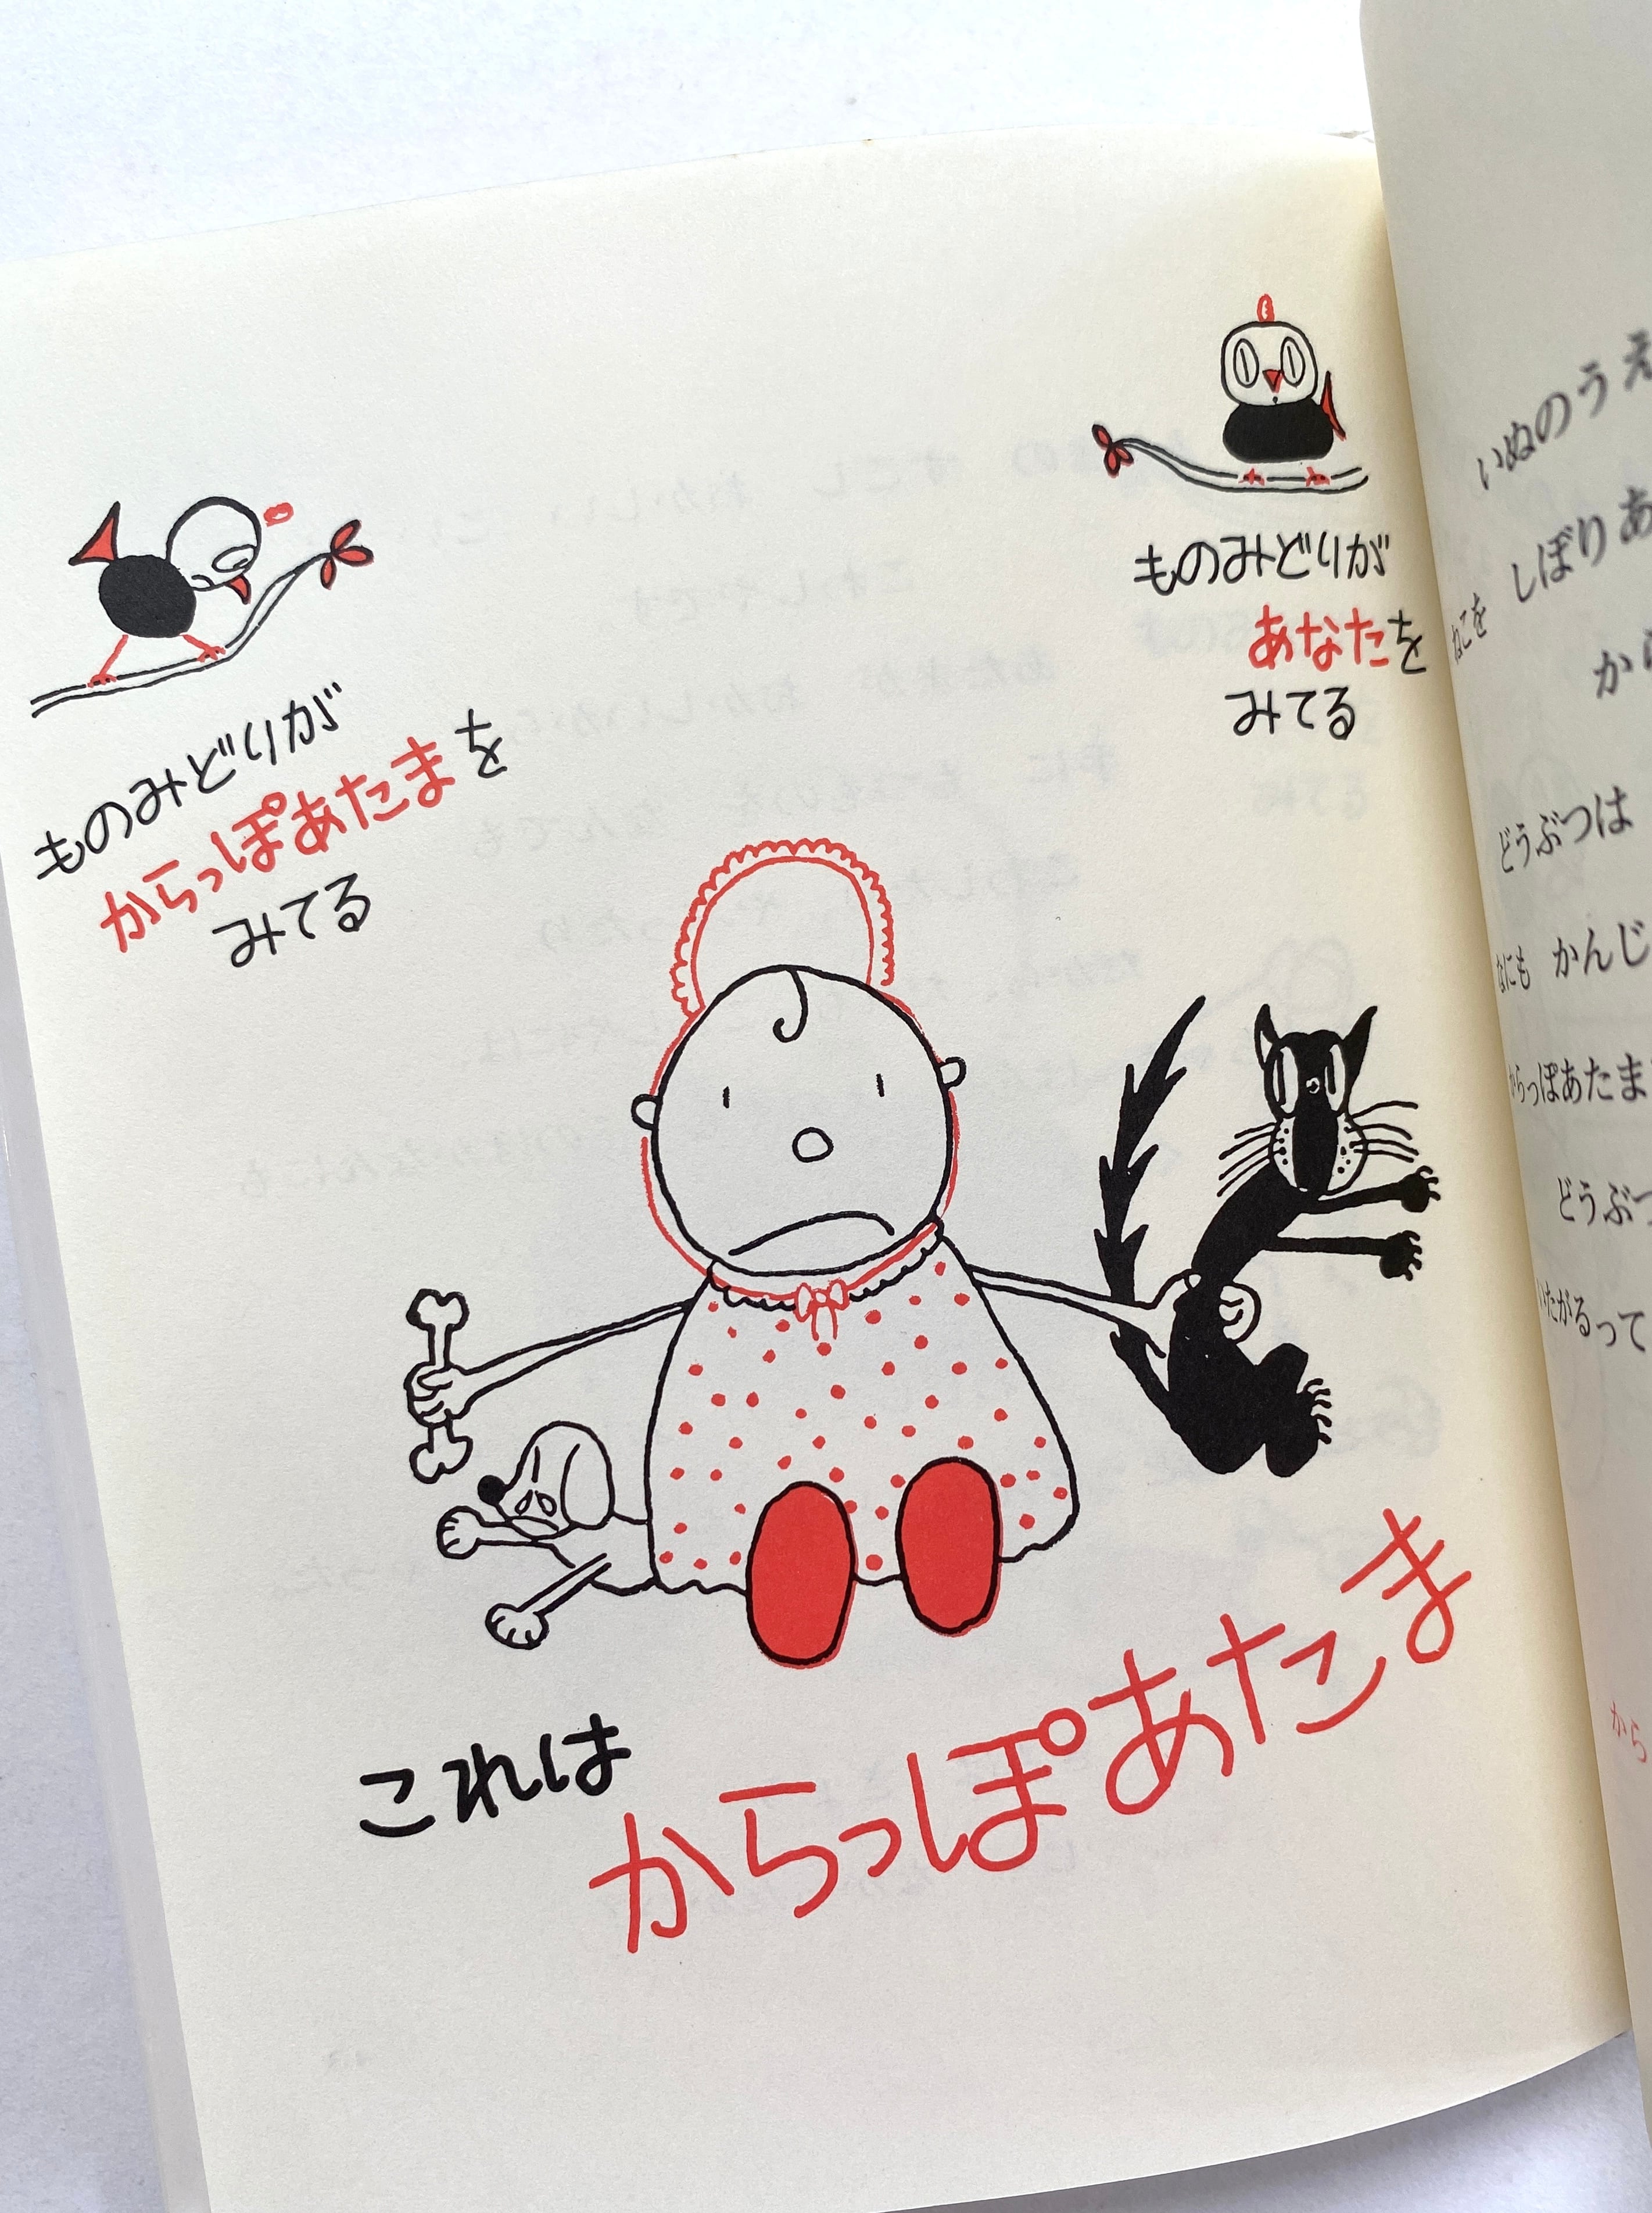 ものみどりが
からっぽあたまを
みてる
ものみどりが
あなたを
みてる
これは
からっぽあたま
いぬのうえ
ねこを しぼりあ
から
どうぶつは
なにも かんじ
からっぽあたま
どうぶつ
いたがるって
から